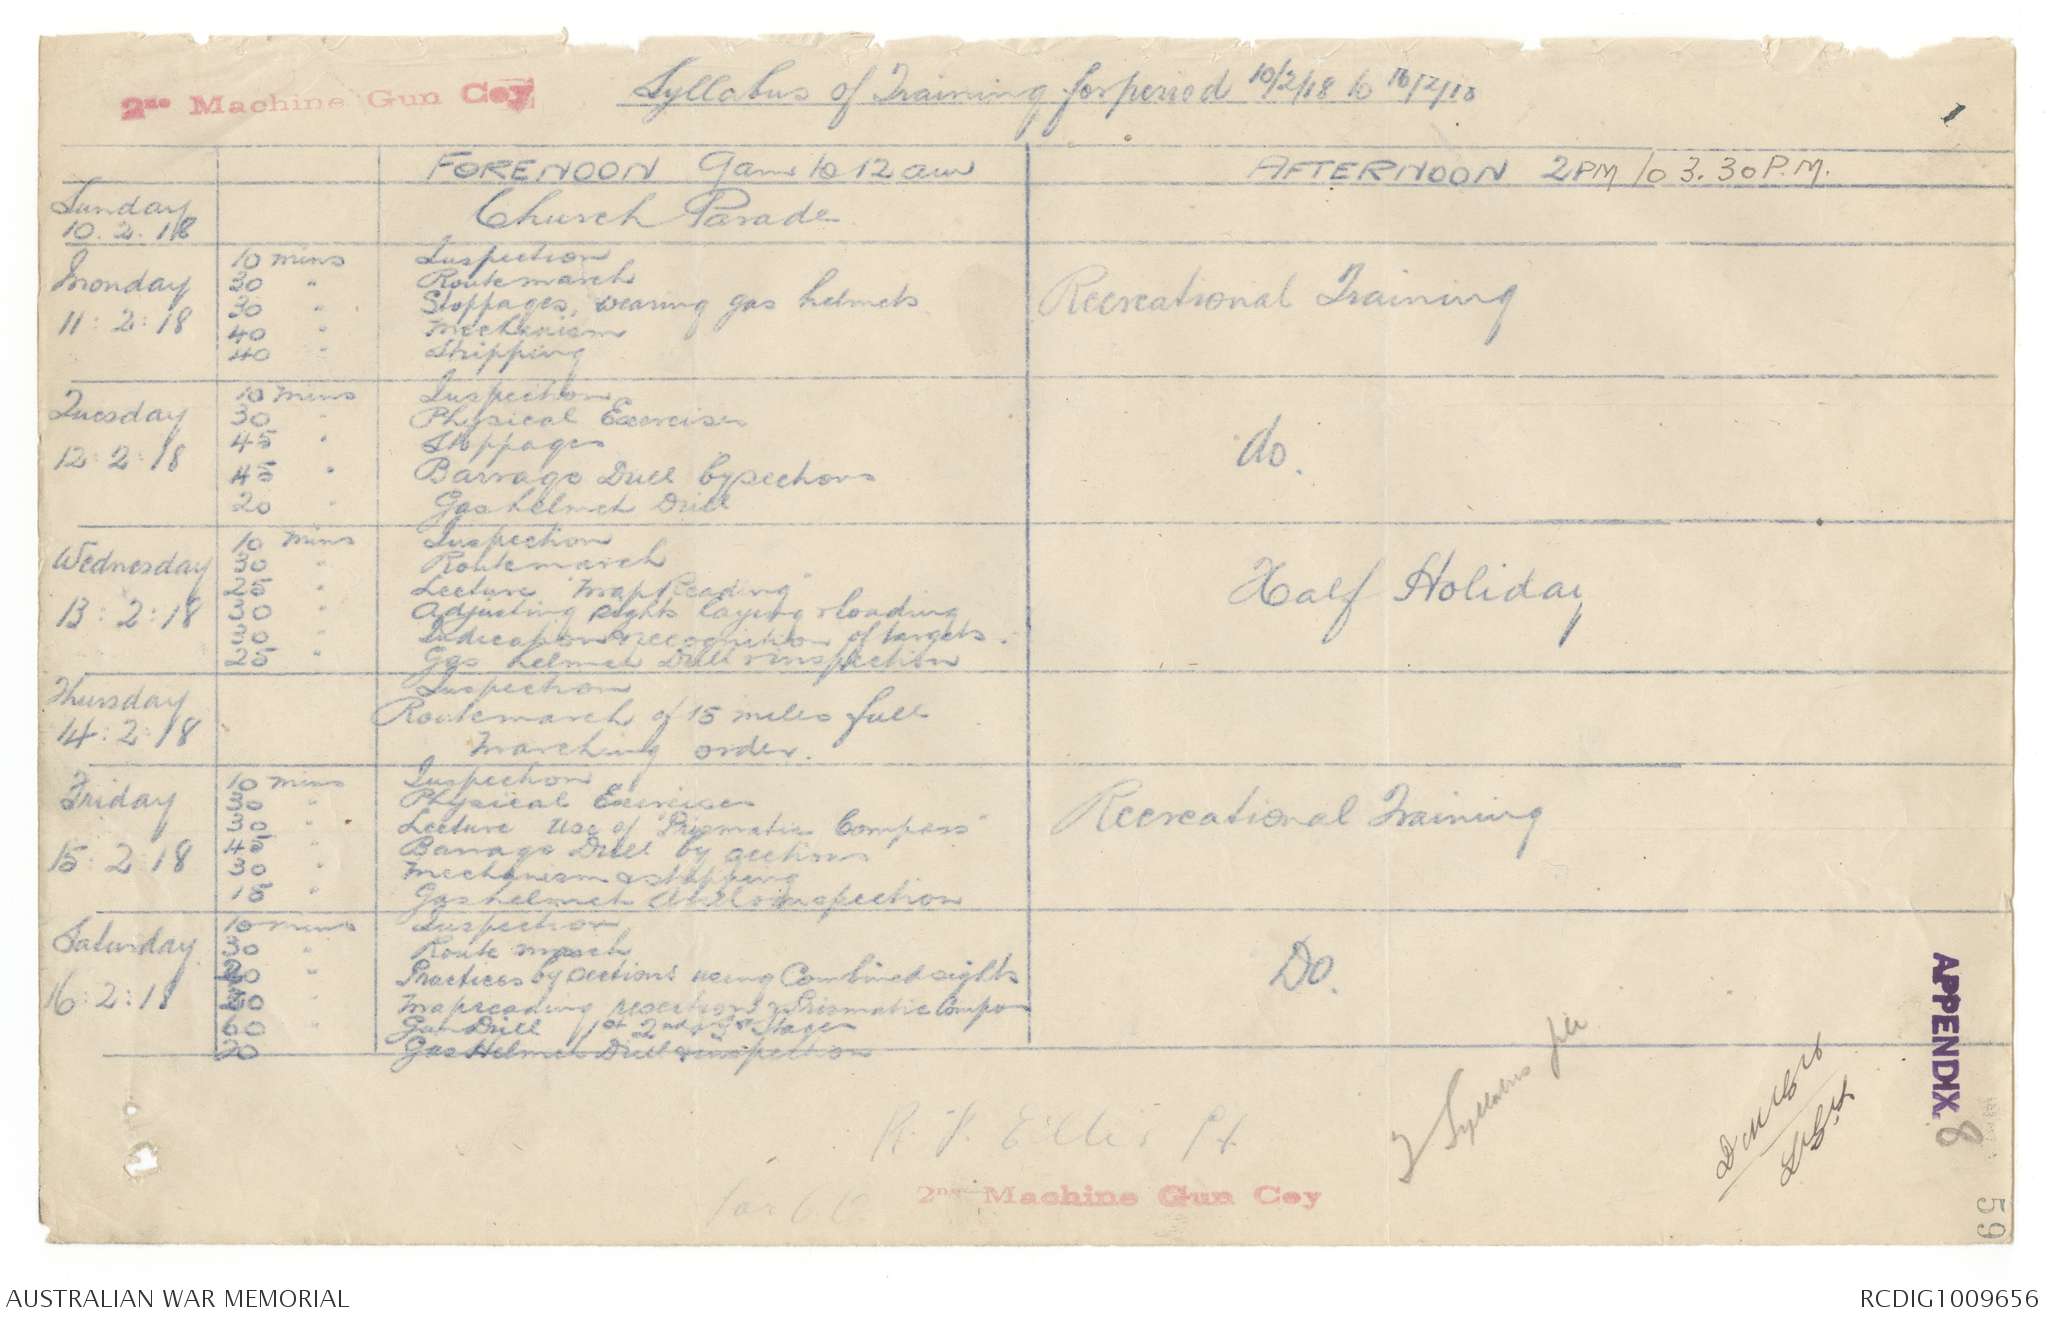 2nd Machine Gun Coy
Syllabus of Training for period 10/2/18 to 16/2/18
FORENOON 9am to 12am
AFTERNOON 2PM to 3.30P.M.
Sunday
10.2.18
Church Parade
Monday
11:2:18
10 mins Inspection
30 " Routemarch
30 " Stoppages, wearing gas helmets
40 " Mechanism
40 " Stripping
Recreational Training
Tuesday
12:2:18
10 mins Inspection
30 " Physical Exercises
45 " Stoppages
45 " Barrage Drill by sections
20 " Gas helmet Drill
do.
Wednesday
13:2:18
10 mins Inspection
30 " Routemarch
25 " Lecture "Map Reading"
30 " Adjusting sights laying & loading
30 " Indication & recognition of targets.
25 " Gas helmet Drill & inspection
Half Holiday
Thursday
14:2:18
Inspection
Routemarch of 15 miles full
marching order.
Friday
15:2:18
10 mins Inspection
30 " Physical Exercises
30 " Lecture Use of "Prismatic Compass"
45 " Barrage Drill by sections
30 " Mechanism & stripping
15 " Gas helmet drill & inspection
Recreational Training
Saturday
16:2:18
10 mins Inspection
30 " Route march
20 " Practices by sections using Combined sights
" Mapreading resections & Prismatic Compass
60 " Gun Drill 1st 2nd & 3rd Stages
20 Gas Helmet Drill & inspection
Do.
Syllabus file
R. F. Ellis Lt
for O C 2nd Machine Gun Coy
APPENDIX 8
59
AUSTRALIAN WAR MEMORIAL
RCDIG1009656